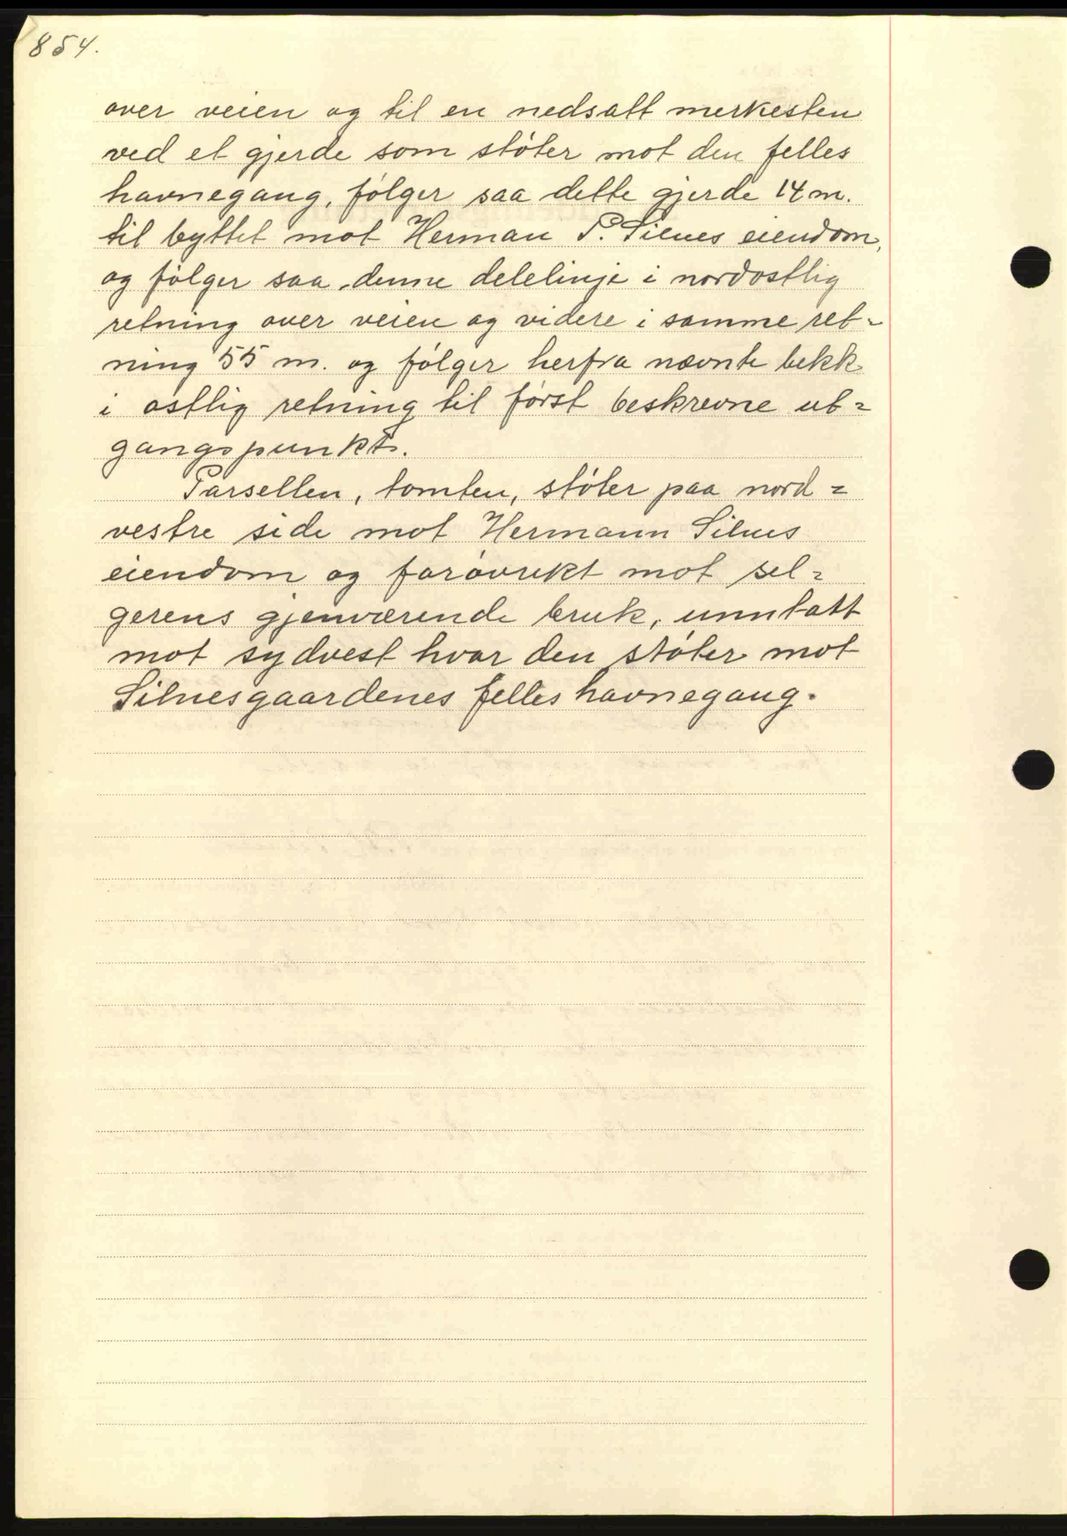 854.
over veien og til en nedsatt merkesten
ved et gjerde som støter mot den felles
havnegang, følger saa dette gjerde 14 m.
til byttet mot Herman P. Silnes eiendom,
og følger saa denne delelinje i nordostlig
retning over veien og videre i samme ret=
ning 55 m. og følger herfra nævnte bekk
i ostlig retning til først beskrevne ut=
gangspunkt.
Parsellen, tomten, støter paa nord=
vestre side mot Hermann Silnes
eiendom og forøvrikt mot sel=
gerens gjenværende bruk, unntatt
mot sydvest hvor den støter mot
Silnesgaardenes felles havnegang.